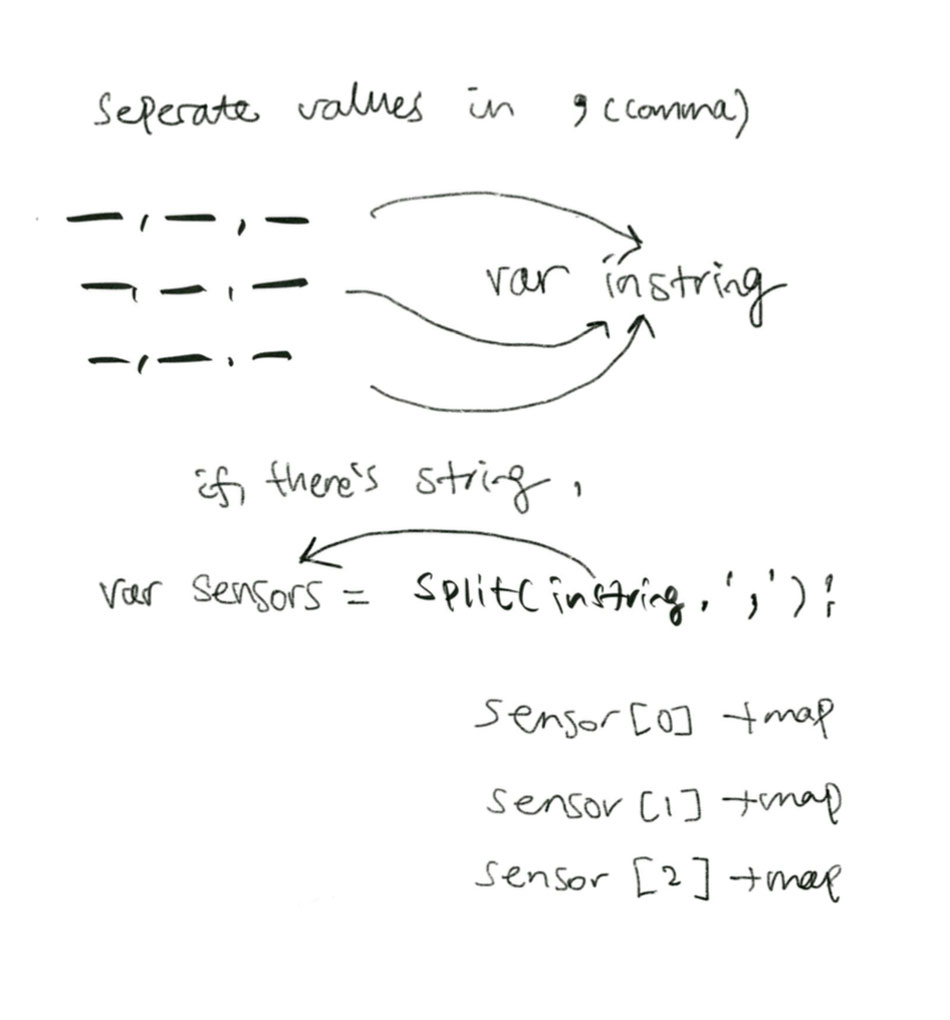 Seperate values in , (comma)
—, —, —
var instring
—, —, —
—, —, —
if there's string,
var sensors = split(instring, ',');
sensor[0] +map
sensor [1] +map
sensor [2] +map